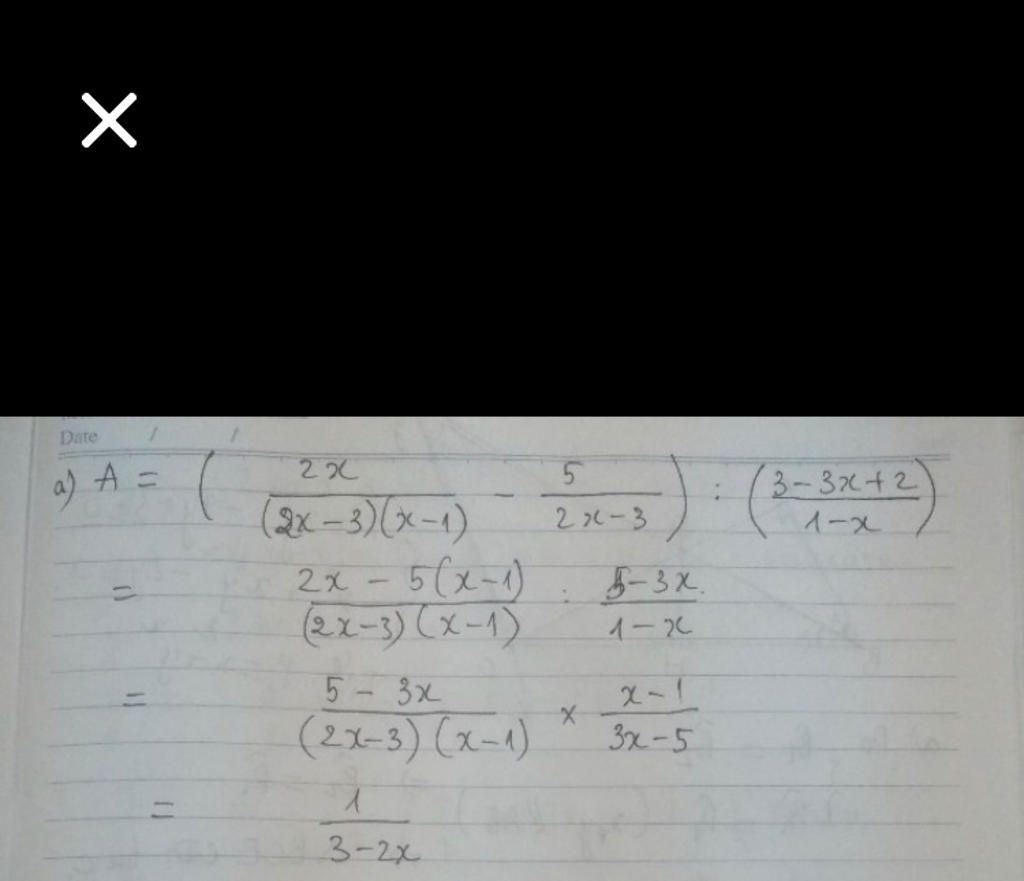 Date / /
a) A = ( 2x / (2x-3)(x-1) - 5 / 2x-3 ) : ( 3-3x+2 / 1-x )
= 2x - 5(x-1) / (2x-3)(x-1) : 5-3x / 1-x
= 5 - 3x / (2x-3)(x-1) × x-1 / 3x-5
= 1 / 3-2x